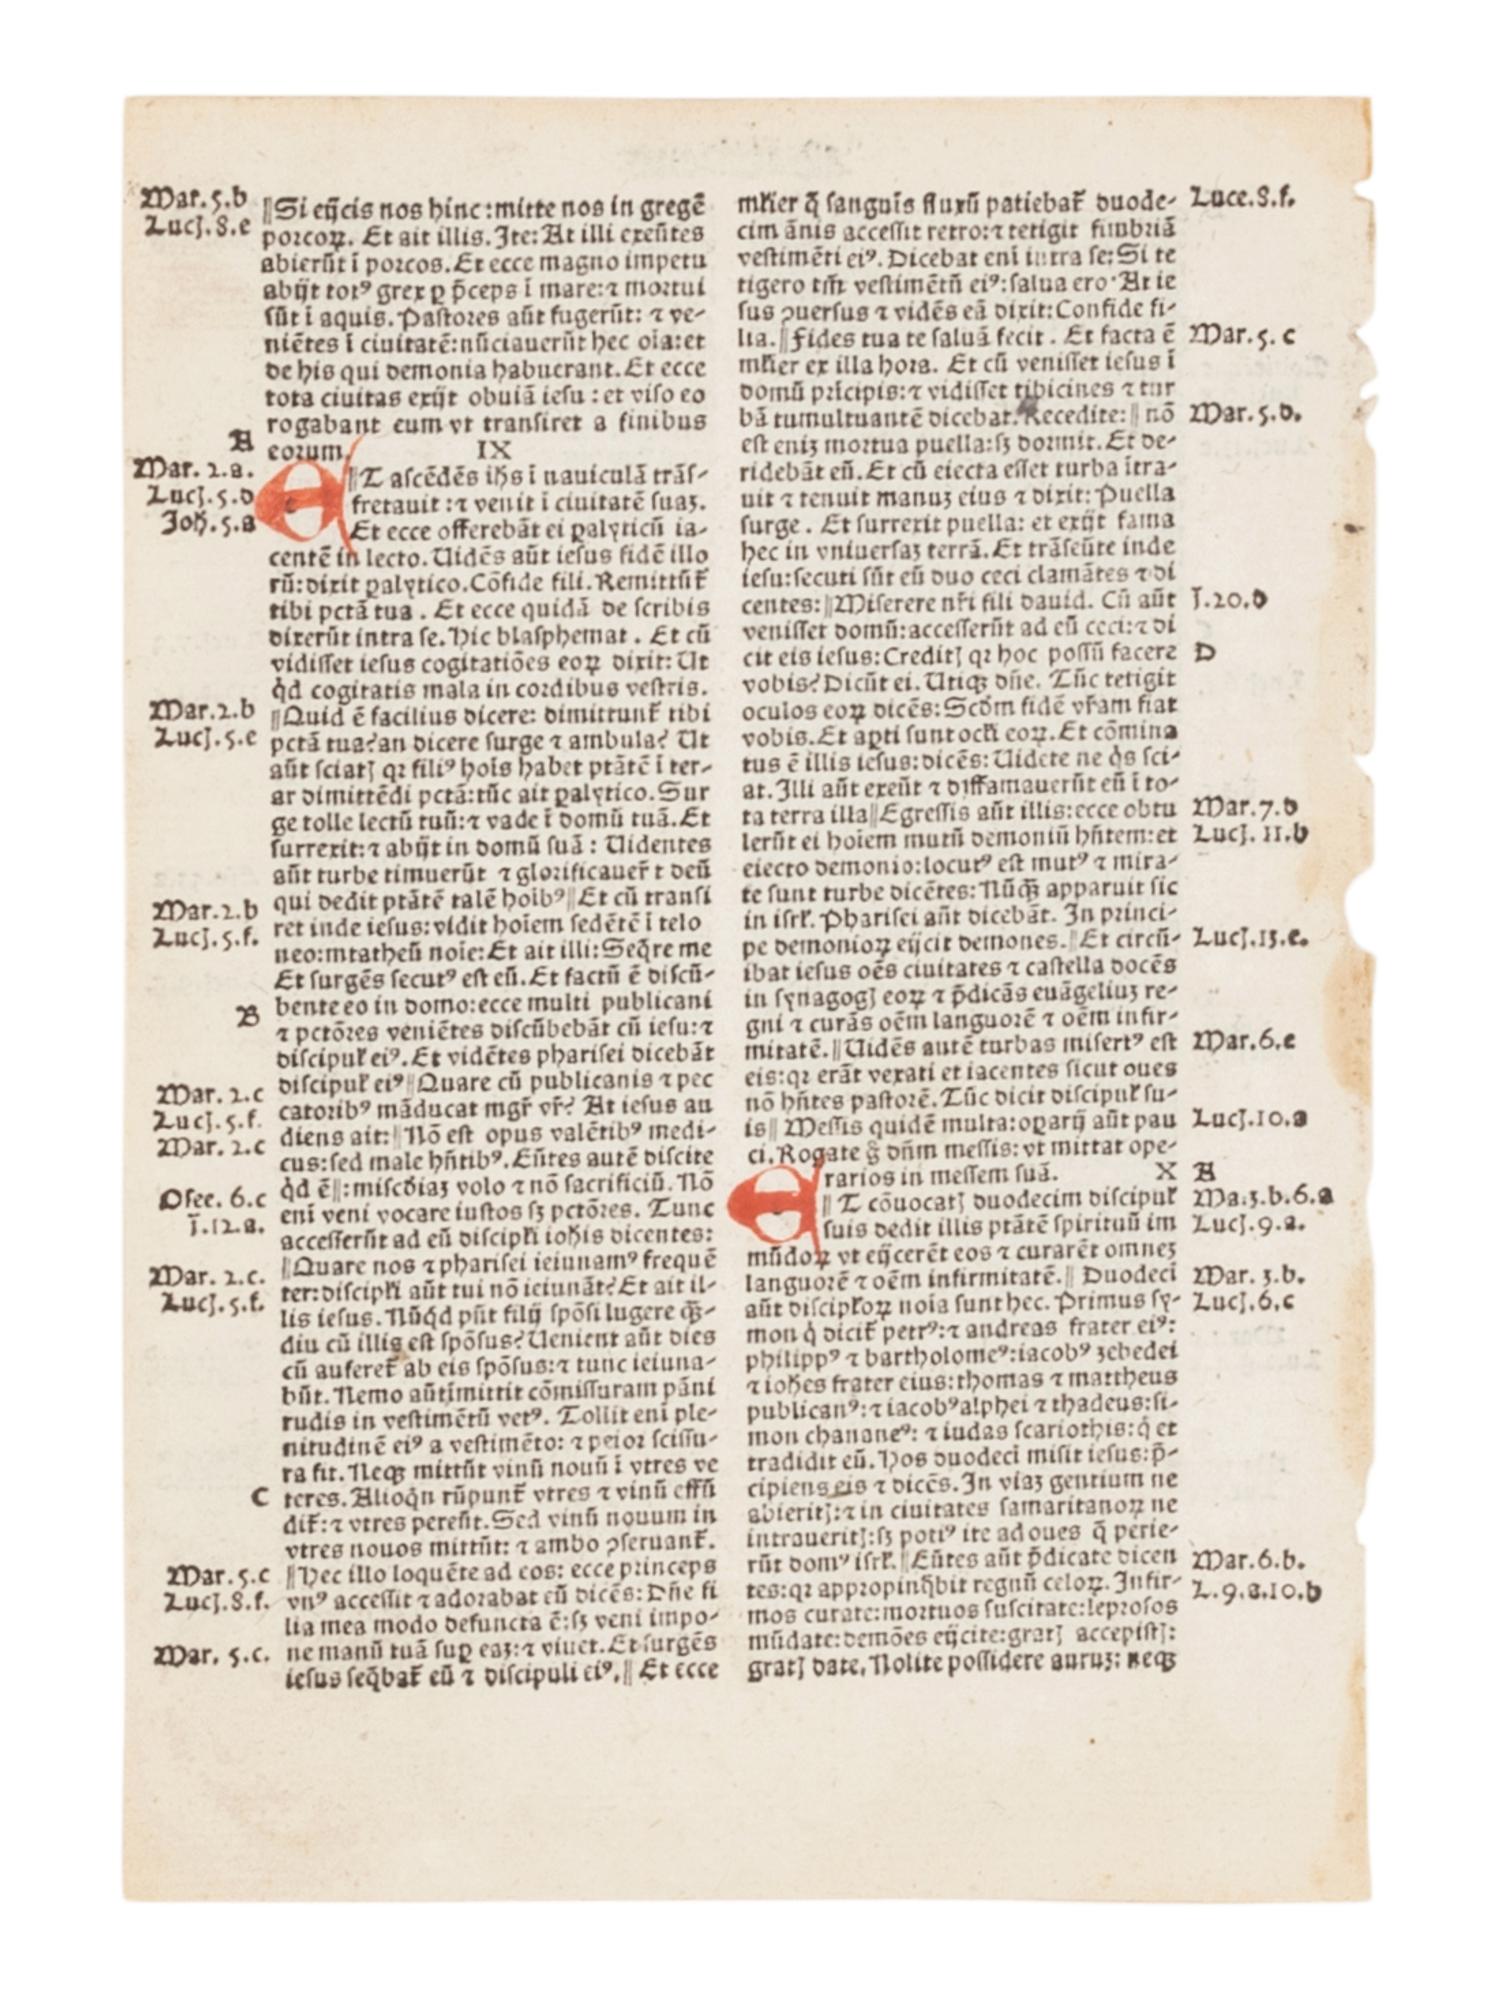 Mar. 5.b
Lucꝭ. 8.e
‖Si eijcis nos hinc: mitte nos in gregē
porcoꝝ. Et ait illis. Ite: At illi exeūtes
abierūt ī porcos. Et ecce magno impetu
abijt totꝰ grex ꝑ p̄ceps ī mare: ⁊ mortui
sūt ī aquis. Pastores aūt fugerūt: ⁊ ve-
niētes ī ciuitatē: nūciauerūt hec oīa: et
de his qui demonia habuerant. Et ecce
tota ciuitas exijt obuiā iesu: et viso eo
rogabant eum vt transiret a finibus
eorum. IX
A
Mar. 2.a.
Lucꝭ. 5.d
Joh. 5.a
E‖T ascēdēs ihs ī nauiculā trās-
fretauit: ⁊ venit ī ciuitatē suaꝫ.
Et ecce offerebāt ei ꝑalyticū ia-
centē in lecto. Uidēs aūt iesus fidē illo
rū: dixit ꝑalytico. Cōfide fili. Remittūt̄
tibi pctā tua. Et ecce quidā de scribis
dixerūt intra se. Hic blasphemat. Et cū
vidisset iesus cogitatiōes eoꝝ dixit: Ut
q̇d cogitatis mala in cordibus vestris.
Mar. 2.b
Lucꝭ. 5.e
‖Quid ē facilius dicere: dimittunt̄ tibi
pctā tua? an dicere surge ⁊ ambula? Ut
aūt sciatꝭ qꝛ filiꝰ hoīs habet ptātē ī ter-
ar dimittēdi pctā: tūc ait ꝑalytico. Sur
ge tolle lectū tuū: ⁊ vade ī domū tuā. Et
surrexit: ⁊ abijt in domū suā: Uidentes
aūt turbe timuerūt ⁊ glorificauer̄t deū
qui dedit ptātē talē hoībꝰ‖Et cū transi
Mar. 2.b
Lucꝭ. 5.f.
ret inde iesus: vidit hoīem sedētē ī telo
neo: mtatheū noīe: Et ait illi: Seq̄re me
Et surgēs secutꝰ est eū. Et factū ē discū-
B
bente eo in domo: ecce multi publicani
⁊ pctōres veniētes discūbebāt cū iesu: ⁊
discipul̄ eiꝰ. Et vidētes pharisei dicebāt
discipul̄ eiꝰ‖Quare cū publicanis ⁊ pec
Mar. 2.c
Lucꝭ. 5.f.
catoribꝰ māducat mgr̄ vr̄? At iesus au
diens ait:‖Nō est opus valētibꝰ medi-
Mar. 2.c
cus: sed male hn̄tibꝰ. Eūtes autē discite
q̇d ē‖: mīscdiaꝫ volo ⁊ nō sacrificiū. Nō
Osee. 6.c
ī. 12.a.
enī veni vocare iustos sꝫ pctōres. Tunc
accesserūt ad eū discipl̄i iohis dicentes:
‖Quare nos ⁊ pharisei ieiunamꝰ frequē
Mar. 2.c.
Lucꝭ. 5.f.
ter: discipl̄i aūt tui nō ieiunāt? Et ait il-
lis iesus. Nūq̇d pn̄t filij spōsi lugere qꝫ̄-
diu cū illis est spōsus? Uenient aūt dies
cū auferet̄ ab eis spōsus: ⁊ tunc ieiuna-
būt. Nemo aūt īmittit cōmissuram pāni
rudis in vestimētū vetꝰ. Tollit enī ple-
nitudinē eiꝰ a vestimēto: ⁊ peior scissu-
ra fit. Neqꝫ mittūt vinū nouū ī vtres ve
C
teres. Alioq̇n rūpunt̄ vtres ⁊ vinū effū
dit̄: ⁊ vtres pereūt. Sed vinū nouum in
vtres nouos mittūt: ⁊ ambo ꝯseruant̄.
Mar. 5.c
Lucꝭ. 8.f.
‖Hec illo loquēte ad eos: ecce princeps
vnꝰ accessit ⁊ adorabat eū dicēs: Dn̄e fi
lia mea modo defuncta ē: sꝫ veni impo-
Mar. 5.c.
ne manū tuā suꝑ eaꝫ: ⁊ viuet. Et surgēs
iesus seq̄bat̄ eū ⁊ discipuli eiꝰ.‖Et ecce
ml̄ier q̄ sanguīs fluxū patiebat̄ duode-
Luce. 8.f.
cim ānis accessit retro: ⁊ tetigit fimbriā
vestimēti eiꝰ. Dicebat enī intra se: Si te
tigero tm̄ vestimētū eiꝰ: salua ero. At ie
sus ꝯuersus ⁊ vidēs eā dixit: Confide fi-
lia.‖Fides tua te saluā fecit. Et facta ē
Mar. 5.c
ml̄ier ex illa hora. Et cū venisset iesus ī
domū prīcipis: ⁊ vidisset tibicines ⁊ tur
bā tumultuantē dicebat. Recedite:‖nō
Mar. 5.d.
est eniꝫ mortua puella: sꝫ dormit. Et de-
ridebāt eū. Et cū eiecta esset turba ītra-
uit ⁊ tenuit manuꝫ eius ⁊ dixit: Puella
surge. Et surrexit puella: et exijt fama
hec in vniuersaꝫ terrā. Et trāseūte inde
iesu: secuti sūt eū duo ceci clamātes ⁊ di
centes:‖Miserere nr̄i fili dauid. Cū aūt
ī. 20.d
venisset domū: accesserūt ad eū ceci: ⁊ di
cit eis iesus: Creditꝭ qꝛ hoc possū facere
D
vobis? Dicūt ei. Utiqꝫ dn̄e. Tūc tetigit
oculos eoꝝ dicēs: Scdm̄ fidē vr̄am fiat
vobis. Et aꝑti sunt ocl̄i eoꝝ. Et cōmina
tus ē illis iesus: dicēs: Uidete ne q̇s sci-
at. Illi aūt exeūt ⁊ diffamauerūt eū ī to-
ta terra illa‖Egressis aūt illis: ecce obtu
Mar. 7.d
Lucꝭ. 11.b
lerūt ei hoīem mutū demoniū hn̄tem: et
eiecto demonio: locutꝰ est mutꝰ ⁊ mira-
te sunt turbe dicētes: Nūqꝫ̄ apparuit sic
in isrl̄. Pharisei aūt dicebāt. In princi-
pe demonioꝝ eijcit demones.‖Et circū-
Lucꝭ. 13.e.
ibat iesus oēs ciuitates ⁊ castella docēs
in synagogꝭ eoꝝ ⁊ p̄dicās euāgeliuꝫ re-
gni ⁊ curās oēm languorē ⁊ oēm infir-
mitatē.‖Uidēs autē turbas misertꝰ est
Mar. 6.e
eis: qꝛ erāt vexati et iacentes sicut oues
nō hn̄tes pastorē. Tūc dicit discipul̄ su-
is‖Messis quidē multa: oꝑarij aūt pau
Lucꝭ. 10.a
ci. Rogate g̊ dn̄m messis: vt mittat ope-
rarios in messem suā. X
A
E‖T cōuocatꝭ duodecim discipul̄
Ma. 3.b. 6.a
suis dedit illis ptātē spirituū im
Lucꝭ. 9.a.
mūdoꝝ vt eijcerēt eos ⁊ curarēt omneꝫ
languorē ⁊ oēm infirmitatē.‖Duodecī
Mar. 3.b.
Lucꝭ. 6.c
aūt discipl̄oꝝ noīa sunt hec. Primus sy-
mon q̇ dicit̄ petrꝰ: ⁊ andreas frater eiꝰ:
philippꝰ ⁊ bartholomeꝰ: iacobꝰ zebedei
⁊ iohes frater eius: thomas ⁊ mattheus
publicanꝰ: ⁊ iacobꝰ alphei ⁊ thadeus: si-
mon chananeꝰ: ⁊ iudas scariothis: q̇ et
tradidit eū. Hos duodecī misit iesus: p̄-
cipiens eis ⁊ dicēs. In viaꝫ gentium ne
abieritꝭ: ⁊ in ciuitates samaritanoꝝ ne
intraueritꝭ: sꝫ potiꝰ ite ad oues q̄ perie-
rūt domꝰ isrl̄.‖Eūtes aūt p̄dicate dicen
Mar. 6.b.
tes: qꝛ appropinq̄bit regnū celoꝝ. Infir-
L. 9.a. 10.b
mos curate: mortuos suscitate: leprosos
mūdate: demōes eijcite: gratꝭ accepistꝭ:
gratꝭ date. Nolite possidere auruꝫ: neqꝫ